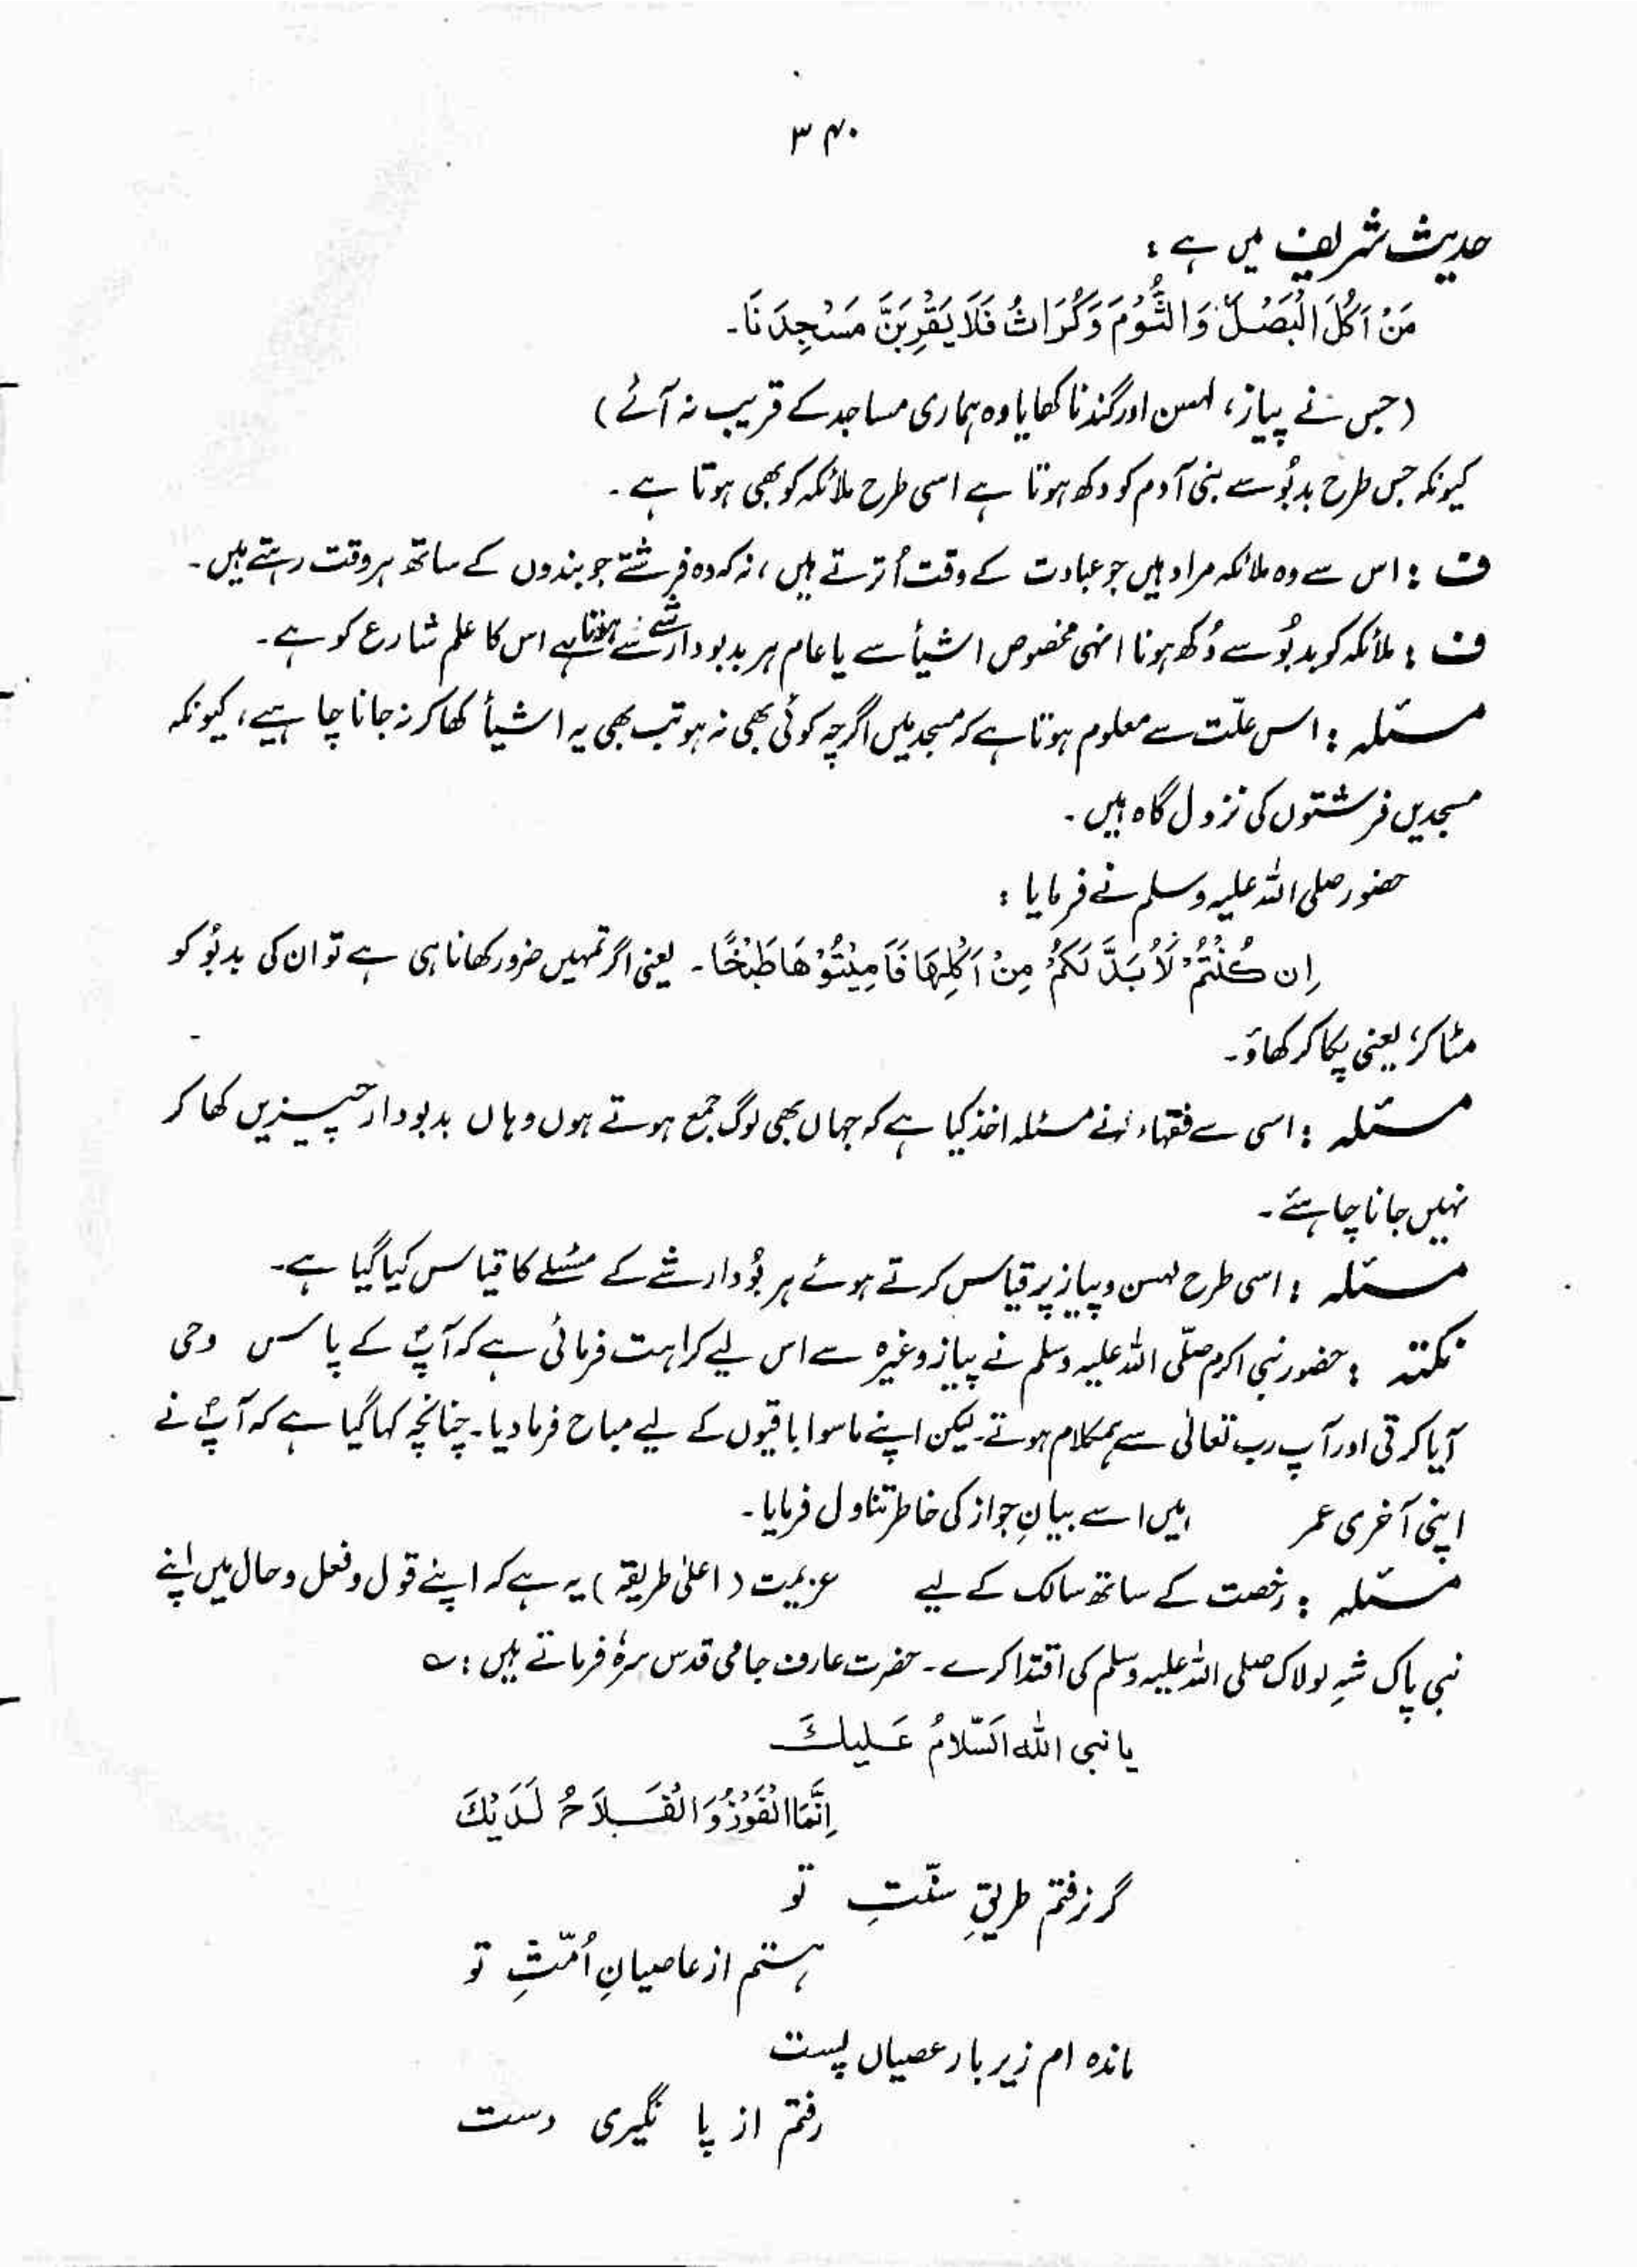 ۳۴۰
حدیث شریف میں ہے :
مَنْ اَکَلَ الْبَصَلَ وَالثُّوْمَ وَکُرَاثُ فَلَا یَقْرِبَنَّ مَسْجِدَنَا۔
(جس نے پیاز، لہسن اور گندنا کھایا وہ ہماری مساجد کے قریب نہ آئے)
کیونکہ جس طرح بدبُو سے بنی آدم کو دکھ ہوتا ہے اسی طرح ملائکہ کو بھی ہوتا ہے ۔
ف : اس سے وہ ملائکہ مراد ہیں جو عبادت کے وقت اُترتے ہیں ، نہ کہ وہ فرشتے جو بندوں کے ساتھ ہر وقت رہتے ہیں ۔
ف : ملائکہ کو بدبُو سے دُکھ ہونا انہی مخصوص اشیأ سے یا عام ہر بدبودار شے سے ہوتا ہے اس کا علم شارع کو ہے ۔
مسئلہ : اس علّت سے معلوم ہوتا ہے کہ مسجد میں اگرچہ کوئی بھی نہ ہو تب بھی یہ اشیأ کھا کر نہ جانا چاہیے ، کیونکہ
مسجدیں فرشتوں کی نزول گاہ ہیں ۔
حضور صلی اللہ علیہ وسلم نے فرمایا :
اِن کُنْتُمْ لَا بُدَّ لَکُمْ مِنْ اَکْلِهَا فَاَمِیْتُوْهَا طَبْخًا ۔ یعنی اگر تمہیں ضرور کھانا ہی ہے تو ان کی بدبُو کو
مٹا کر، یعنی پکا کر کھاؤ ۔
مسئلہ : اسی سے فقہاء نے مسئلہ اخذ کیا ہے کہ جہاں بھی لوگ جمع ہوتے ہوں وہاں بدبودار چیزیں کھا کر
نہیں جانا چاہئے ۔
مسئلہ : اسی طرح لہسن و پیاز پر قیاس کرتے ہوئے ہر بُودار شے کے مسئلے کا قیاس کیا گیا ہے ۔
نکتہ : حضور نبی اکرم صلّی اللہ علیہ وسلم نے پیاز وغیرہ سے اس لیے کراہت فرمائی ہے کہ آپؐ کے پاس وحی
آیا کرتی اور آپ رب تعالٰی سے ہمکلام ہوتے۔ لیکن اپنے ماسوا باقیوں کے لیے مباح فرما دیا۔ چنانچہ کہا گیا ہے کہ آپؐ نے
اپنی آخری عمر میں اسے بیانِ جواز کی خاطر تناول فرمایا ۔
مسئلہ : رخصت کے ساتھ سالک کے لیے عزیمت (اعلیٰ طریقہ) یہ ہے کہ اپنے قول و فعل و حال میں اپنے
نبی پاک شہِ لولاک صلی اللہ علیہ وسلم کی اقتدا کرے ۔ حضرت عارف جامی قدس سرہٗ فرماتے ہیں : ؎
یا نبی اللہ اَلسَّلامُ عَلیكَ
اِنَّمَا الْفَوْزُ وَ الْفَلَاحُ لَدَیْكَ
گر نرفتم طریقِ سنّتِ تو
ہستم از عاصیانِ اُمّتِ تو
ماندہ ام زیر بار عصیاں پست
رفتم از پا نگیری دست